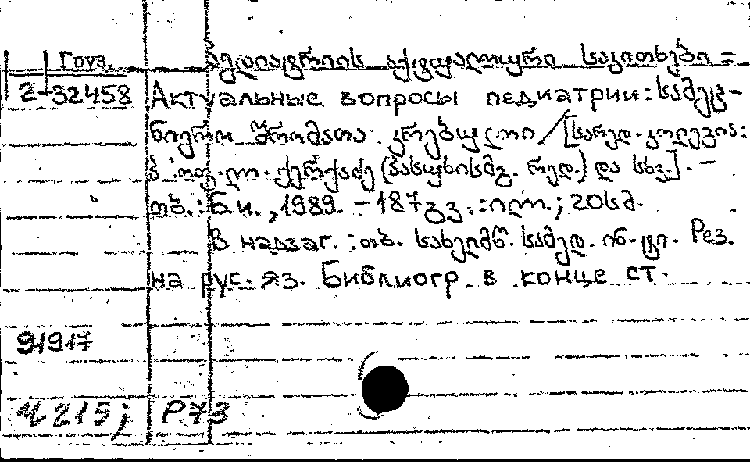 Груз.
2-32458
პედიატრიის აქტუალური საკითხები =
Актуальные вопросы педиатрии: სამეც-
ნიერო შრომათა კრებული / [სარედ. კოლეგია:
(პასუხისმგ. რედ.) და სხვ.]. —
თბ.: Б.и., 1989. - 187 გვ.: ილ.; 20სმ.
В надзаг.: თბ. სახელმწ. სამედ. ინ-ტი. Рез.
на рус. яз. Библиогр. в конце ст.
91917
Ч 215; Р73